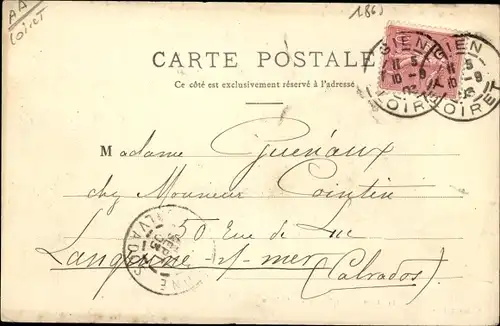 AA
Loiret
1863
CARTE POSTALE
Ce côté est exclusivement réservé à l'adresse
GIEN
11 5
10 -9
03
LOIRET
GIEN
11 5
10 -9
03
LOIRET
Madame Guénaux
chez Monsieur Cointin
50 Rue de Luc
Langrune-s/-mer
(Calvados)
CALVADOS